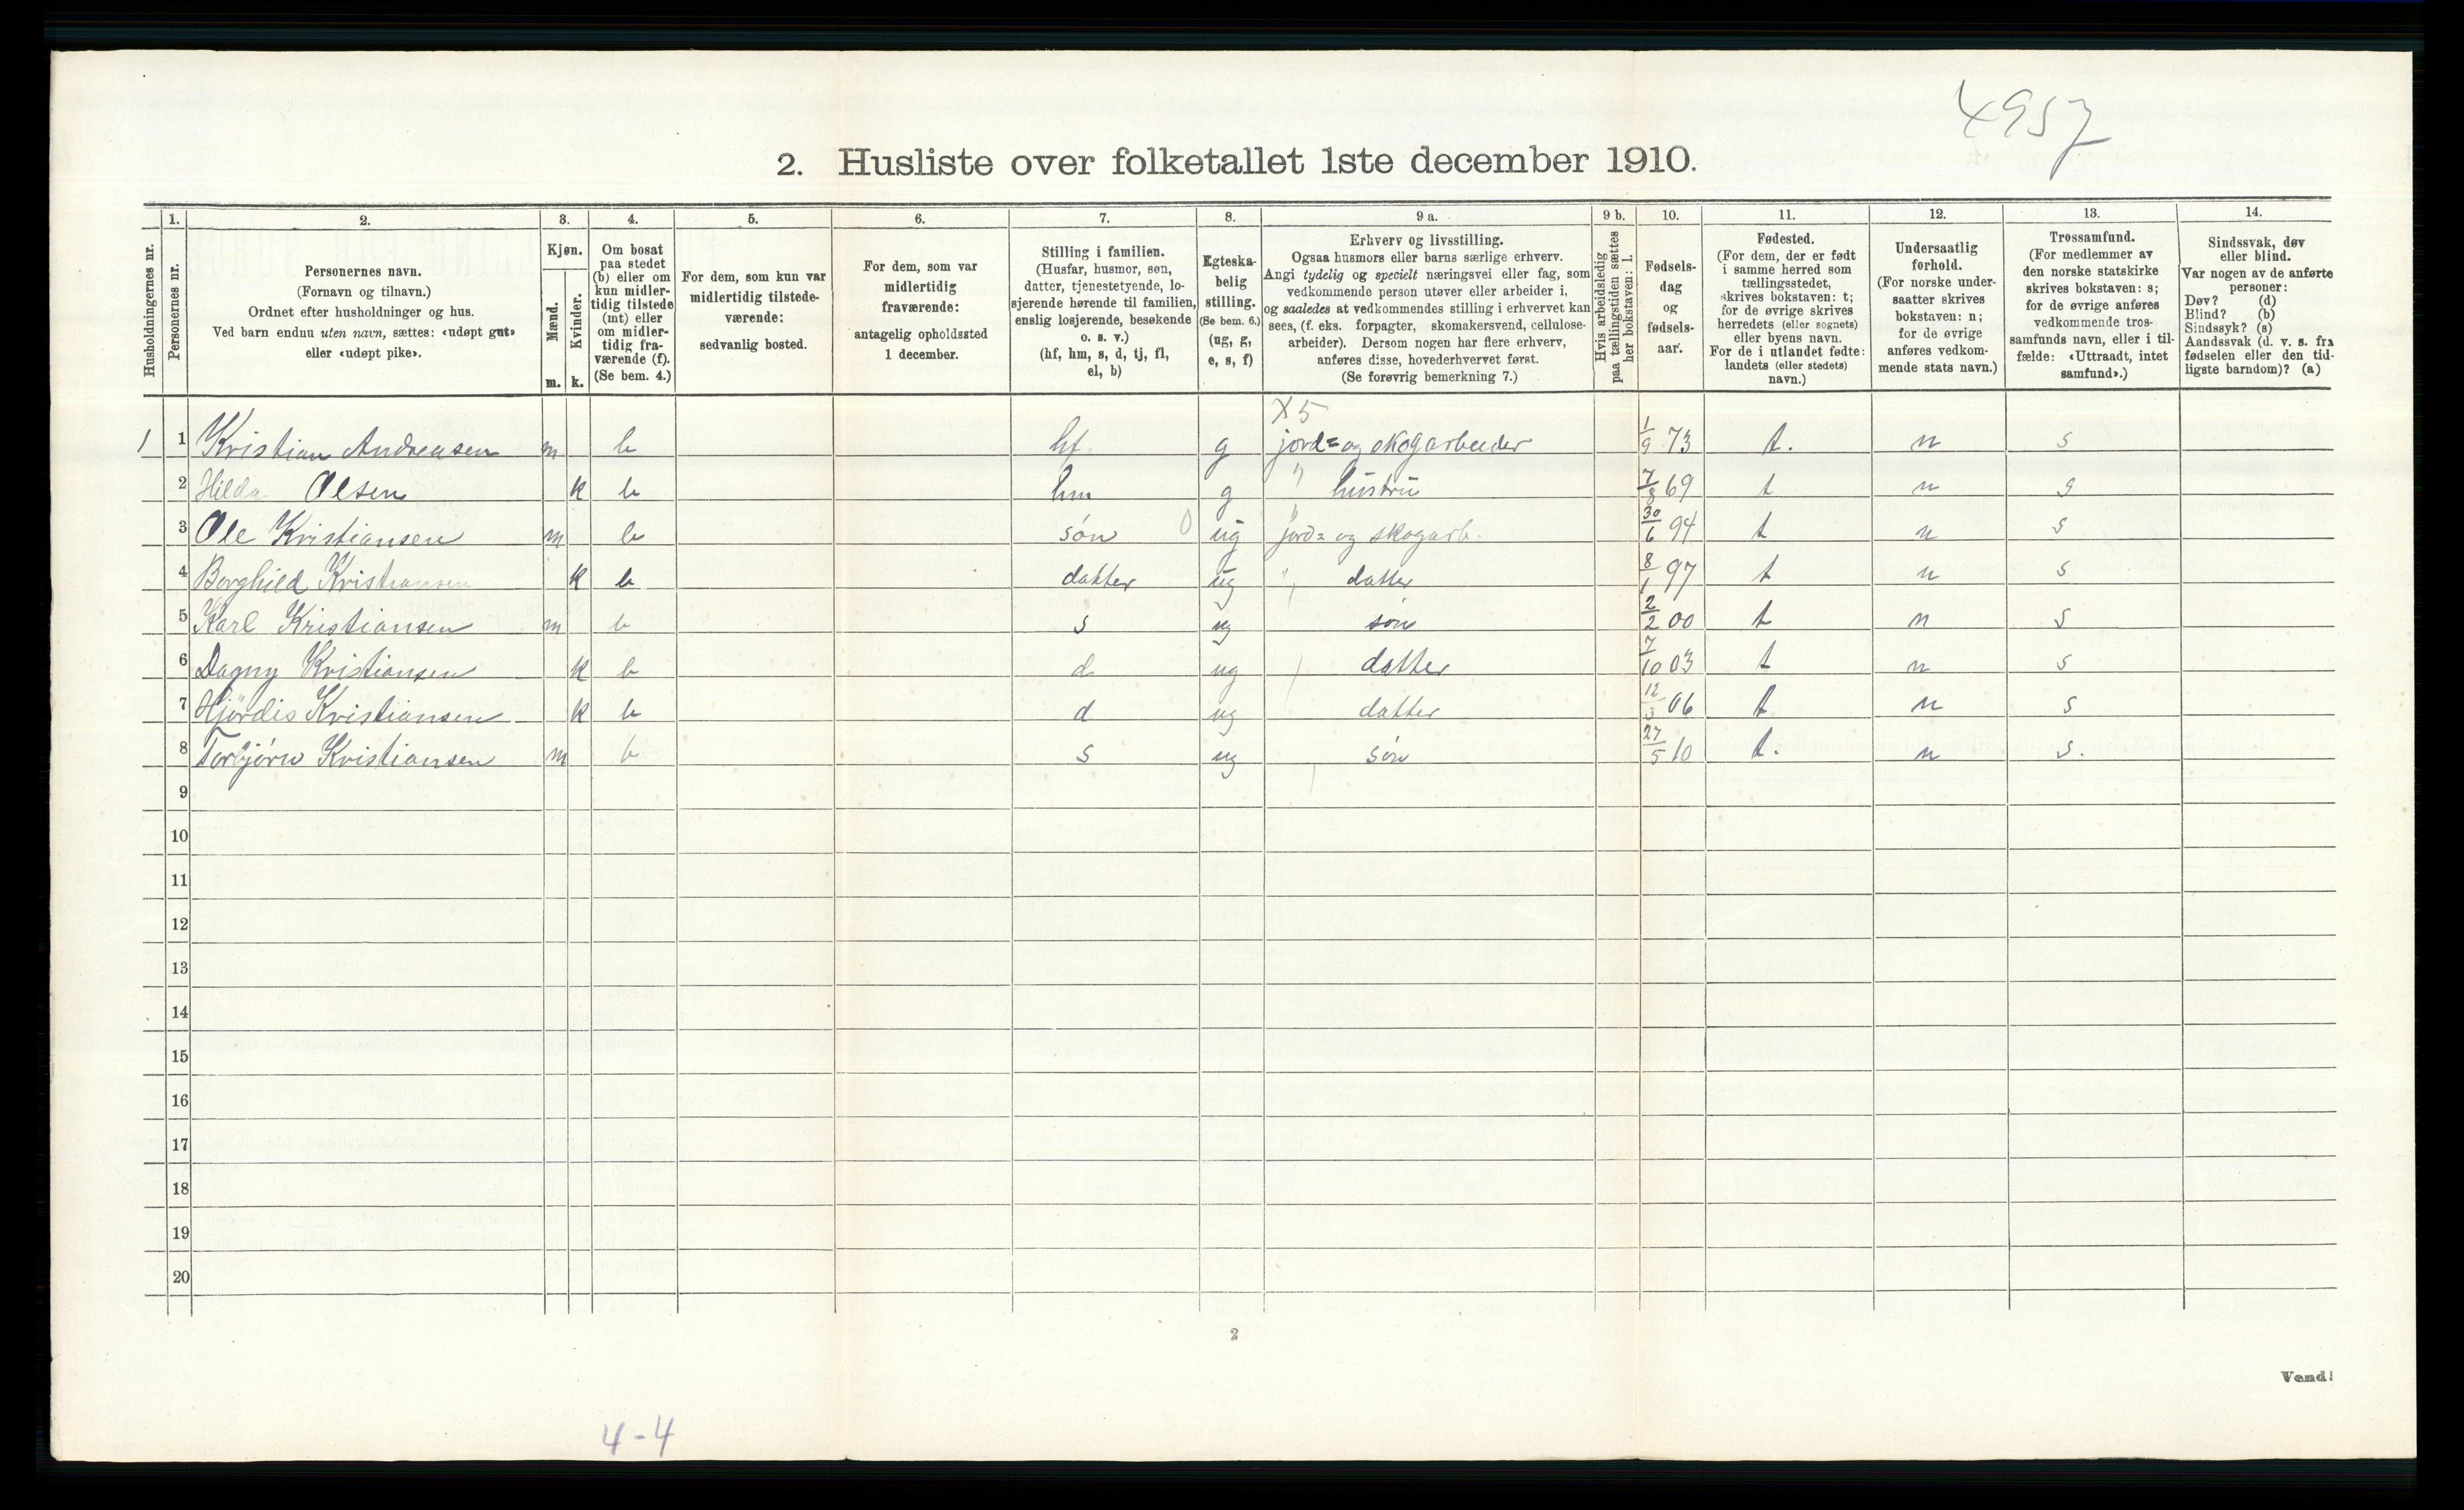 4957
2. Husliste over folketallet 1ste december 1910.
Husholdningernes nr.
1.
Personernes nr.
2.
Personernes navn.
(Fornavn og tilnavn.)
Ordnet efter husholdninger og hus.
Ved barn endnu uten navn, sættes: «udøpt gut»
eller «udøpt pike».
3.
Kjøn.
Mænd.
Kvinder.
m. k.
4.
Om bosat
paa stedet
(b) eller om
kun midler-
tidig tilstede
(mt) eller
om midler-
tidig fra-
værende (f).
(Se bem. 4.)
5.
For dem, som kun var
midlertidig tilstede-
værende:
sedvanlig bosted.
6.
For dem, som var
midlertidig
fraværende:
antagelig opholdssted
1 december.
7.
Stilling i familien.
(Husfar, husmor, søn,
datter, tjenestetyende, lo-
sjerende hørende til familien,
enslig losjerende, besøkende
o. s. v.)
(hf, hm, s, d, tj, fl,
el, b)
8.
Egteska-
belig
stilling.
(Se bem. 6.)
(ug, g,
e, s, f)
9 a.
Erhverv og livsstilling.
Ogsaa husmors eller barns særlige erhverv.
Angi tydelig og specielt næringsvei eller fag, som
vedkommende person utøver eller arbeider i,
og saaledes at vedkommendes stilling i erhvervet kan
sees, (f. eks. forpagter, skomakersvend, cellulose-
arbeider). Dersom nogen har flere erhverv,
anføres disse, hovederhvervet først.
(Se forøvrig bemerkning 7.)
9 b.
Hvis arbeidsledig
paa tællingstiden sættes
her bokstaven: l.
10.
Fødsels-
dag
og
fødsels-
aar.
11.
Fødested.
(For dem, der er født
i samme herred som
tællingsstedet,
skrives bokstaven: t;
for de øvrige skrives
herredets (eller sognets)
eller byens navn.
For de i utlandet fødte:
landets (eller stedets)
navn.)
12.
Undersaatlig
forhold.
(For norske under-
saatter skrives
bokstaven: n;
for de øvrige
anføres vedkom-
mende stats navn.)
13.
Trossamfund.
(For medlemmer av
den norske statskirke
skrives bokstaven: s;
for de øvrige anføres
vedkommende tros-
samfunds navn, eller i til-
fælde: «Uttraadt, intet
samfund».)
14.
Sindssvak, døv
eller blind.
Var nogen av de anførte
personer:
Døv? (d)
Blind? (b)
Sindssyk? (s)
Aandssvak (d. v. s. fra
fødselen eller den tid-
ligste barndom)? (a)
X 5
1 1 Kristian Andreasen m b hf. g jord= og skogarbeider 1/9 73 t. n s
2 Hilda Olsen k b hm g " hustru 7/8 69 t n s
3 Ole Kristiansen m b søn 0 ug jord= og skogarb. 30/6 94 t n s
4 Borghild Kristiansen k b datter ug " datter 8/1 97 t n s
5 Karl Kristiansen m b s ug søn 2/2 00 t n s
6 Dagny Kristiansen k b d ug datter 7/10 03 t n s
7 Hjördis Kristiansen k b d ug datter 12/3 06 t n s
8 Torbjörn Kristiansen m b s ug søn 27/5 10 t. n s.
9
10
11
12
13
14
15
16
17
18
19
20
2
Vend!
4-4